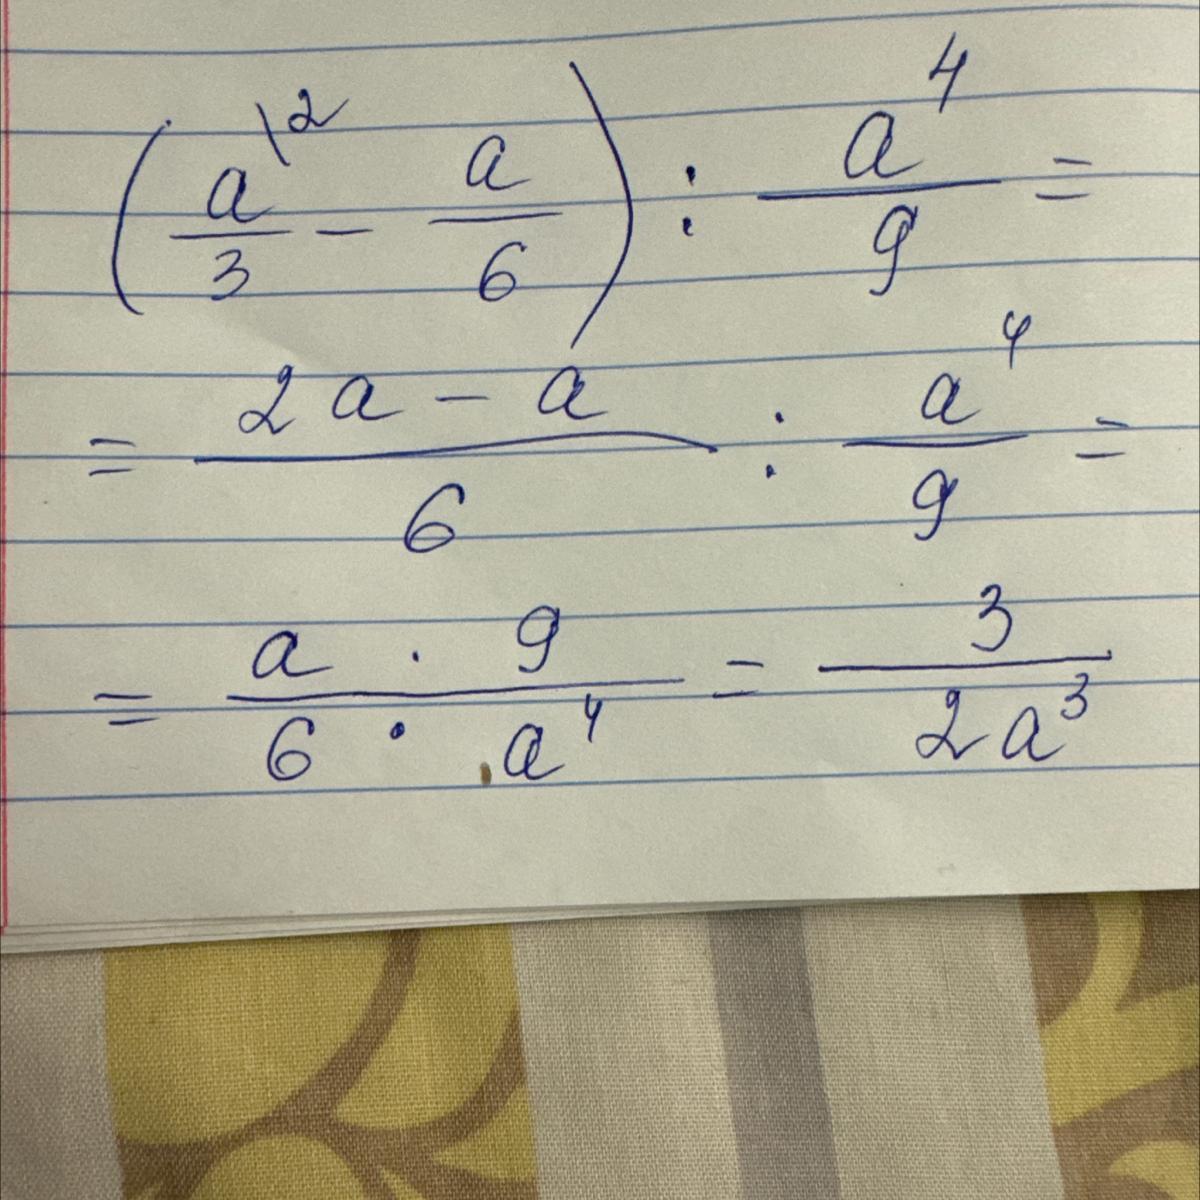 (a\2/3 - a/6) : a^4/9 =
= 2a - a/6 : a^4/9 =
= a · 9/6 · a^4 = 3/2a^3